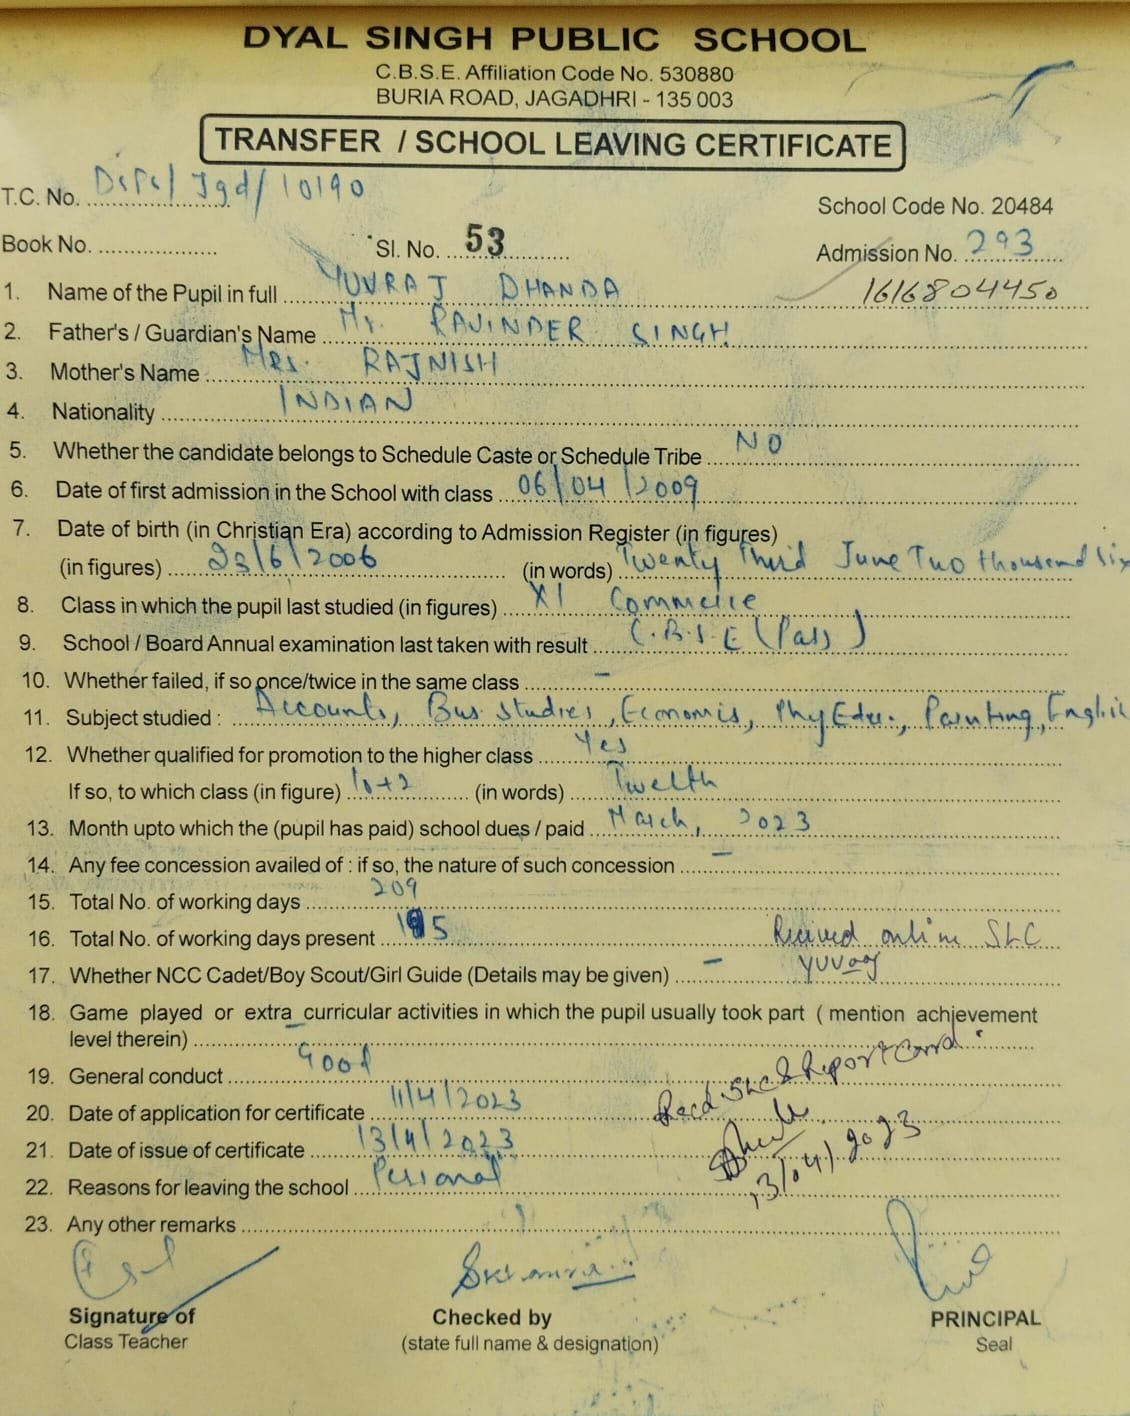 DYAL SINGH PUBLIC SCHOOL
C.B.S.E. Affiliation Code No. 530880
BURIA ROAD, JAGADHRI - 135 003
TRANSFER / SCHOOL LEAVING CERTIFICATE
T.C. No. DSPS/Jgd/10190
School Code No. 20484
Book No. Sl. No. 53 Admission No. 293
1. Name of the Pupil in full YUVRAJ DHANDA 1616804450
2. Father's / Guardian's Name Mr. RAJINDER SINGH
3. Mother's Name Mrs. RAJNISH
4. Nationality INDIAN
5. Whether the candidate belongs to Schedule Caste or Schedule Tribe NO
6. Date of first admission in the School with class 06/04/2009
7. Date of birth (in Christian Era) according to Admission Register (in figures)
(in figures) 23/6/2006 (in words) Twenty Third June Two thousand six
8. Class in which the pupil last studied (in figures) XI Commerce
9. School / Board Annual examination last taken with result C.B.S.E (Pass)
10. Whether failed, if so once/twice in the same class –
11. Subject studied : Accounts, Bus. Studies, Economis, Phy Edu., Painting, English
12. Whether qualified for promotion to the higher class Yes
If so, to which class (in figure) 10+2 (in words) Twelth
13. Month upto which the (pupil has paid) school dues / paid March, 2023
14. Any fee concession availed of : if so, the nature of such concession –
15. Total No. of working days 209
16. Total No. of working days present 195 Recived online SLC
17. Whether NCC Cadet/Boy Scout/Girl Guide (Details may be given) – Yuvraj
18. Game played or extra curricular activities in which the pupil usually took part ( mention achievement
level therein) –
19. General conduct Good
Recd SLC & Report Card.
20. Date of application for certificate 11/4/2023
21. Date of issue of certificate 13/4/2023
13/04/2023
22. Reasons for leaving the school Personal
23. Any other remarks
Signature of Checked by PRINCIPAL
Class Teacher (state full name & designation) Seal